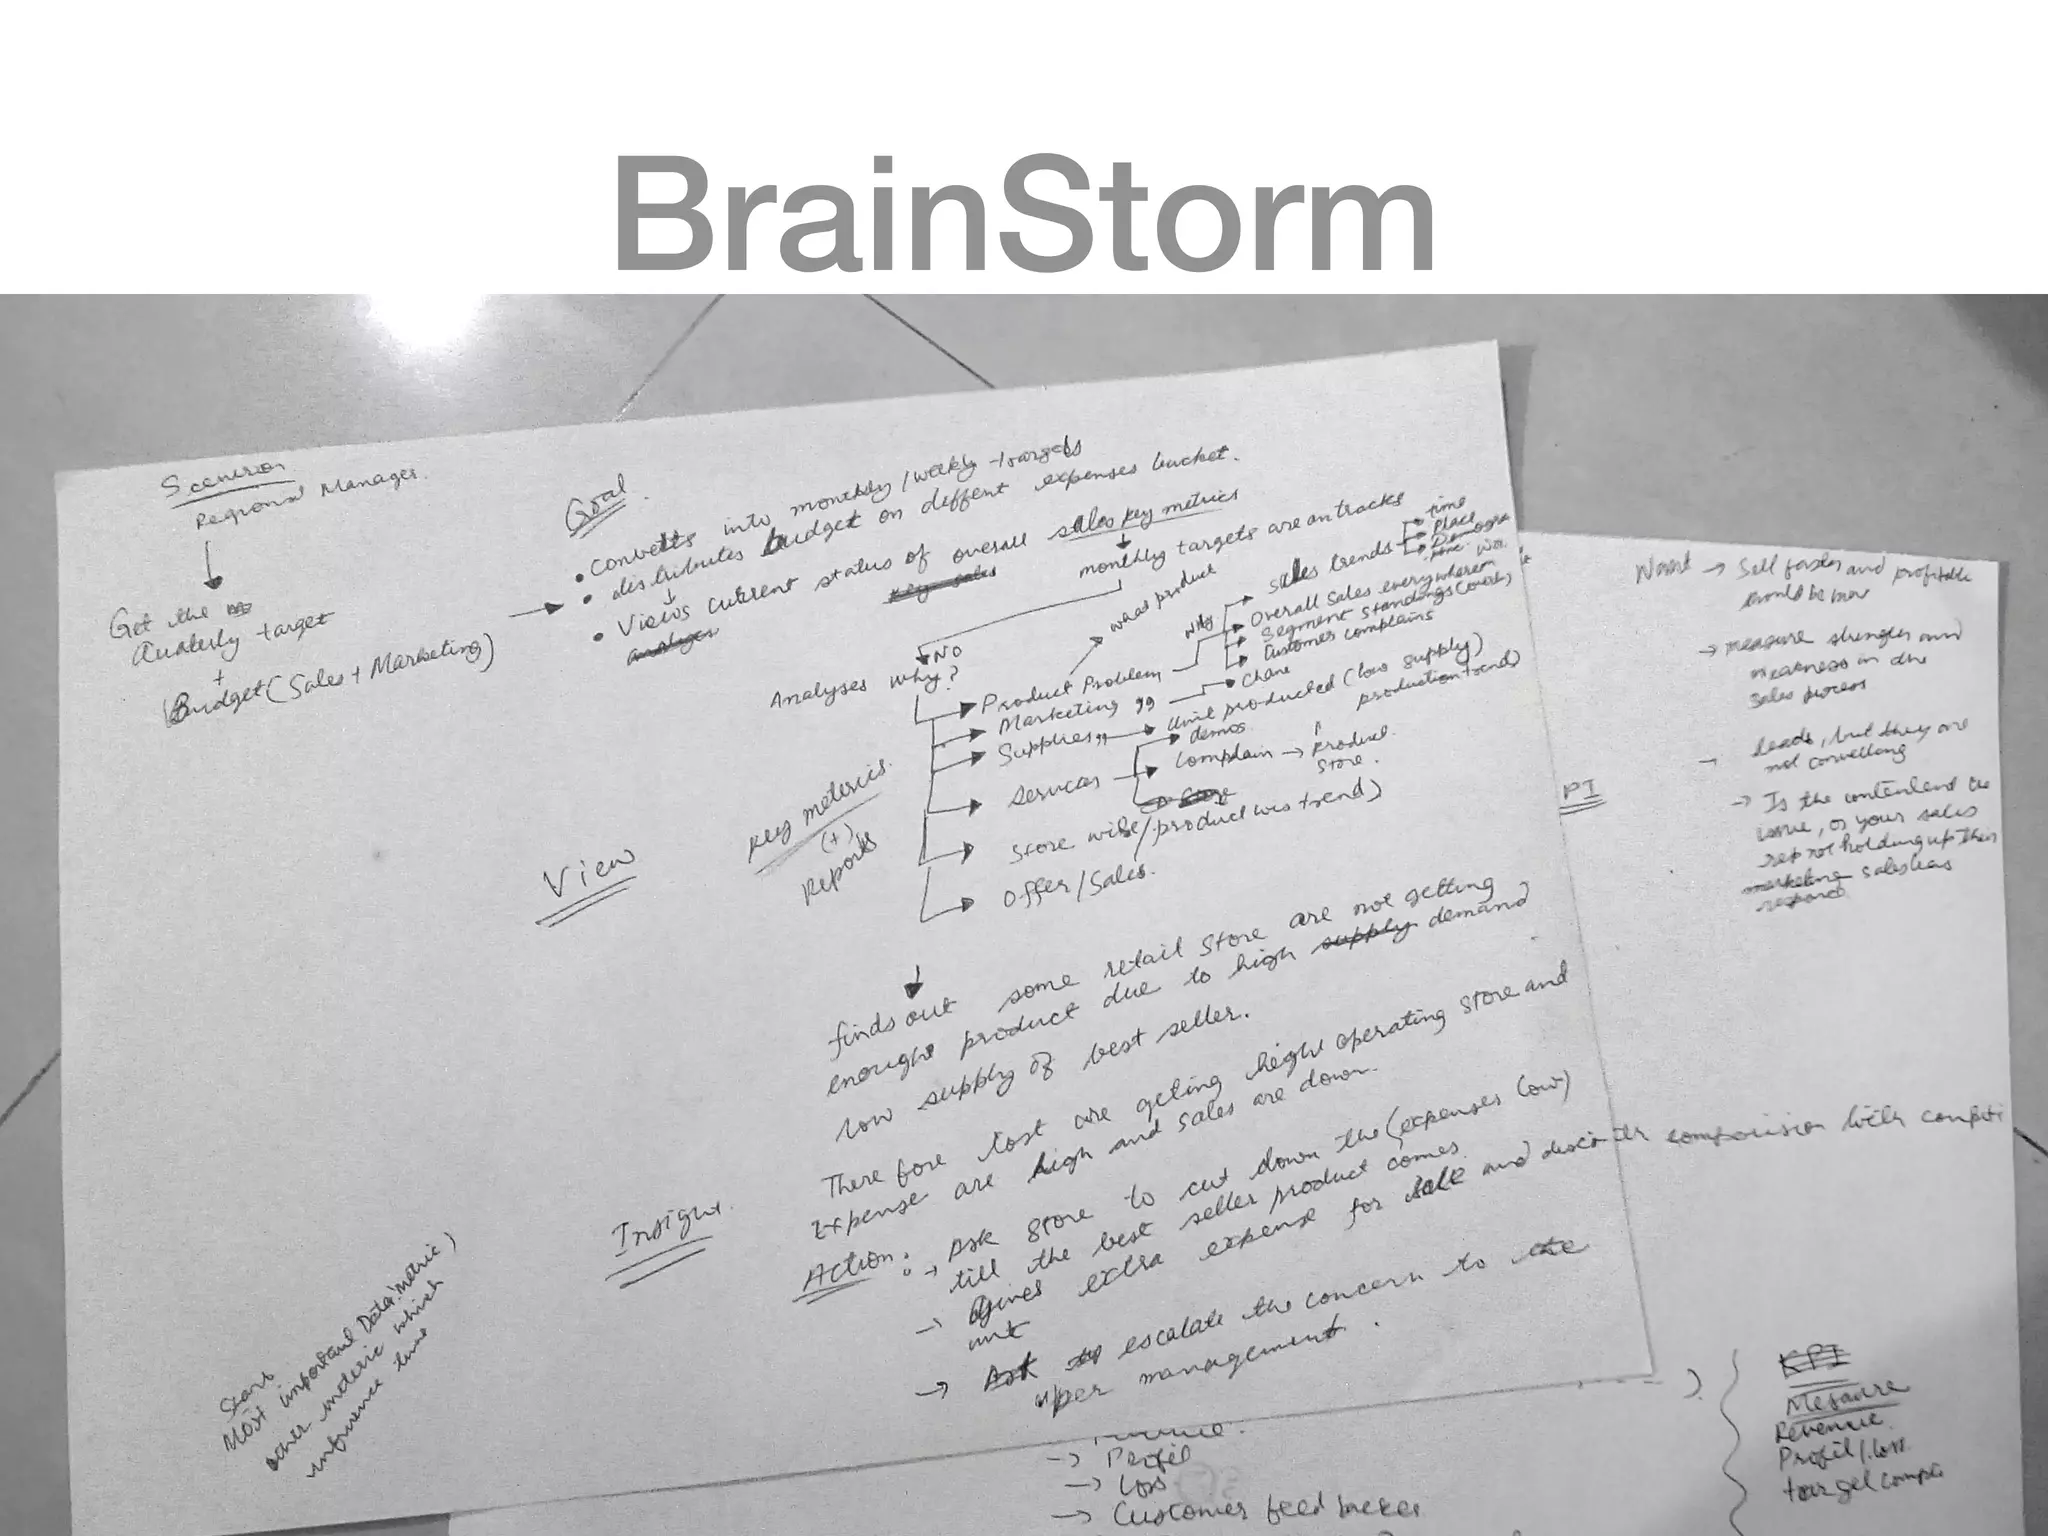 BrainStorm
Scenerion
Regional Manager.
Get the
Quaterly target
+
Budget (Sales + Marketing)
Goal.
• Converts into monthly / weekly targets
• distributes budget on diffent expenses bucket.
• Views current status of overall sales key metrics
key sales
monthly targets are on tracks
NO
Analyses why?
Product Problem
what product
why
sales trends
Time
Place
Overall Sales everywhere
Segment standings
Customer complains
Marketing "
Chane
Supplies "
Unit producted (low supply)
production trend)
Services
demos
Complain → Product
Store.
Store wise / product wis trend)
Offer / Sales.
View
Key meterics.
(+)
Reports
finds out some retail store are not getting
enough product due to high supply demand,
low supply of best seller.
Insight.
There fore Cost are geting height operating store and
Expense are high and sales are down.
Action: → Ask Store to cut down the (expenses low)
till the best seller product comes.
→ Gives extra expense for sale and
unit
→ Ask escalate the concern to the
upper management.
Most important Data: metric)
other meteric which
influence
Want → Sell faster and profitable
should be
→ measure strengths and
weakness in the
Sales process
→ leads, but they are
not
→ Is the the
issue, or your sales
rep not holding up their
marketing
PI
comparision with
KPI
Mesaure
Revenue
Profit / loss
target
→ Profit
→ Loss
→ Customer feed